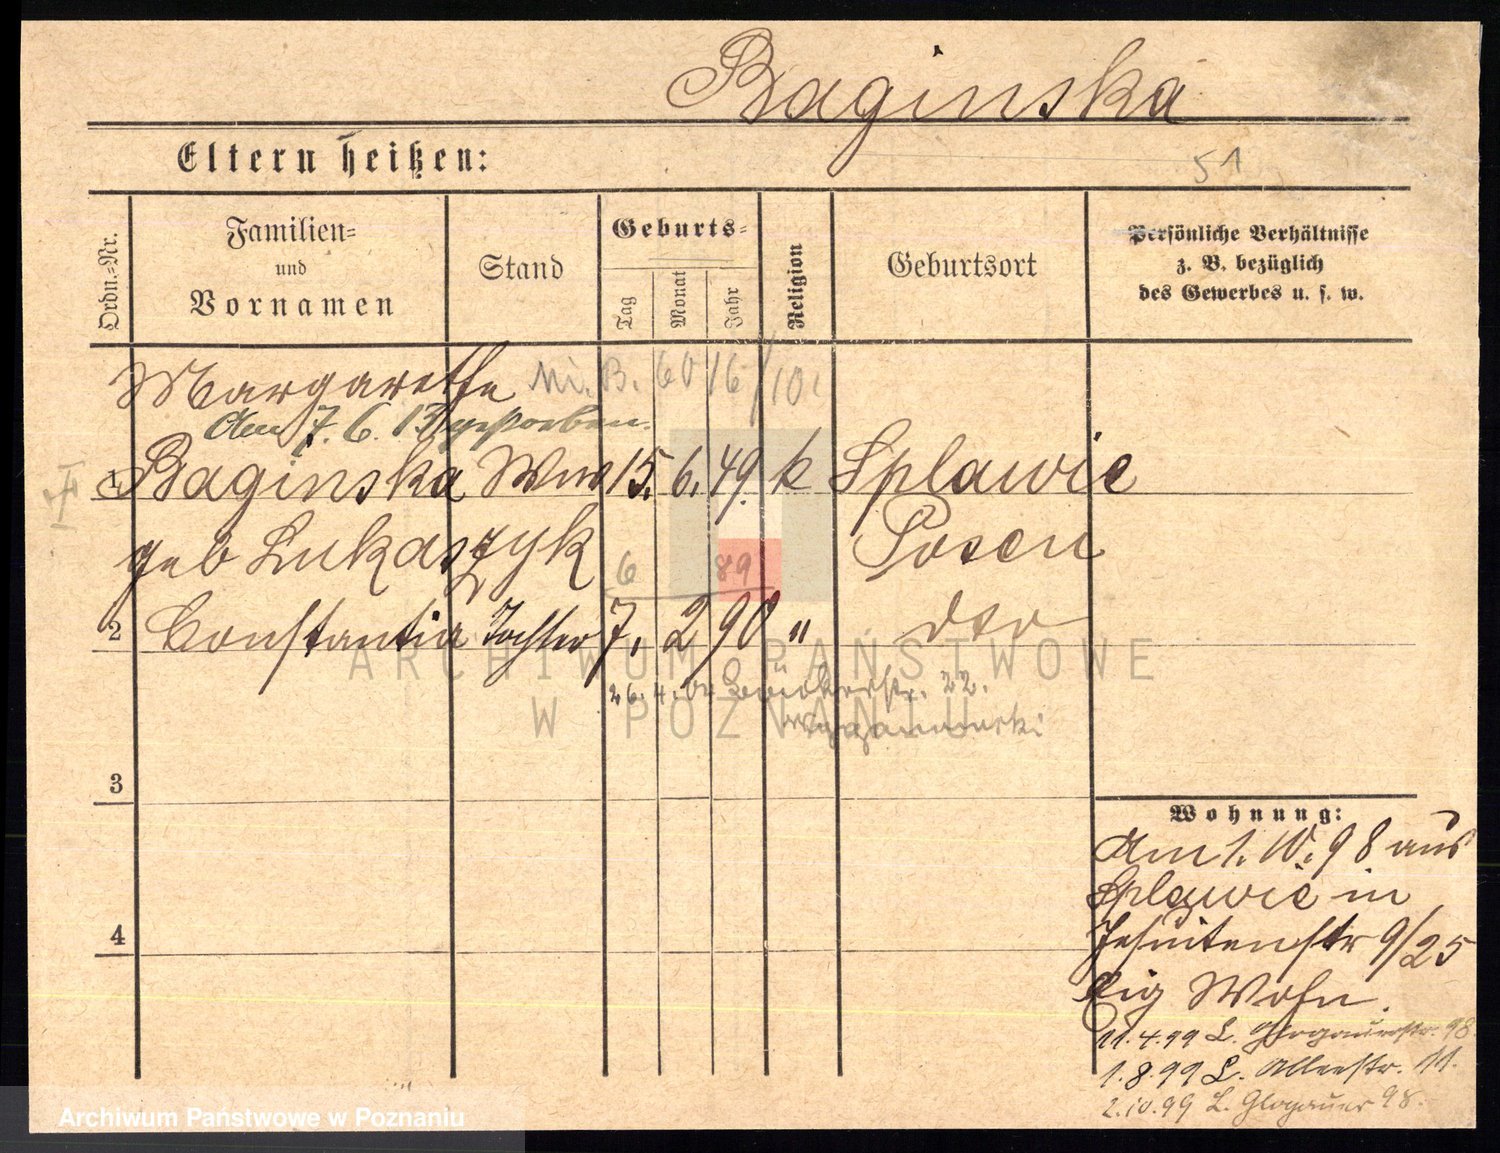 Baginska
Eltern heißen:
51
Ordn.-Nr.
Familien-
und
Vornamen
Stand
Geburts-
Tag
Monat
Jahr
Religion
Geburtsort
Persönliche Verhältnisse
z. B. bezüglich
des Gewerbes u. s. w.
Margarethe
B. 60 16/10.
Am 7. 6. 13 gestorben.
1 Baginska Wwe 15. 6. 49. k Splawie
geb Lukaszyk Posen
6 89
2 Constantia Tochter 7. 2 90 " dto
ARCHIWUM PAŃSTWOWE
26. 4. 22.
W POZNANIU
3
Wohnung:
Am 1. 10. 98 aus
Splawie in
4
Jesuitenstr 9/25
Eig Wohn.
11.4.99 L. Glogauerstr. 98
1.8.99 L. Alleestr. 11.
2.10.99 L. Glogauer 98.
Archiwum Państwowe w Poznaniu